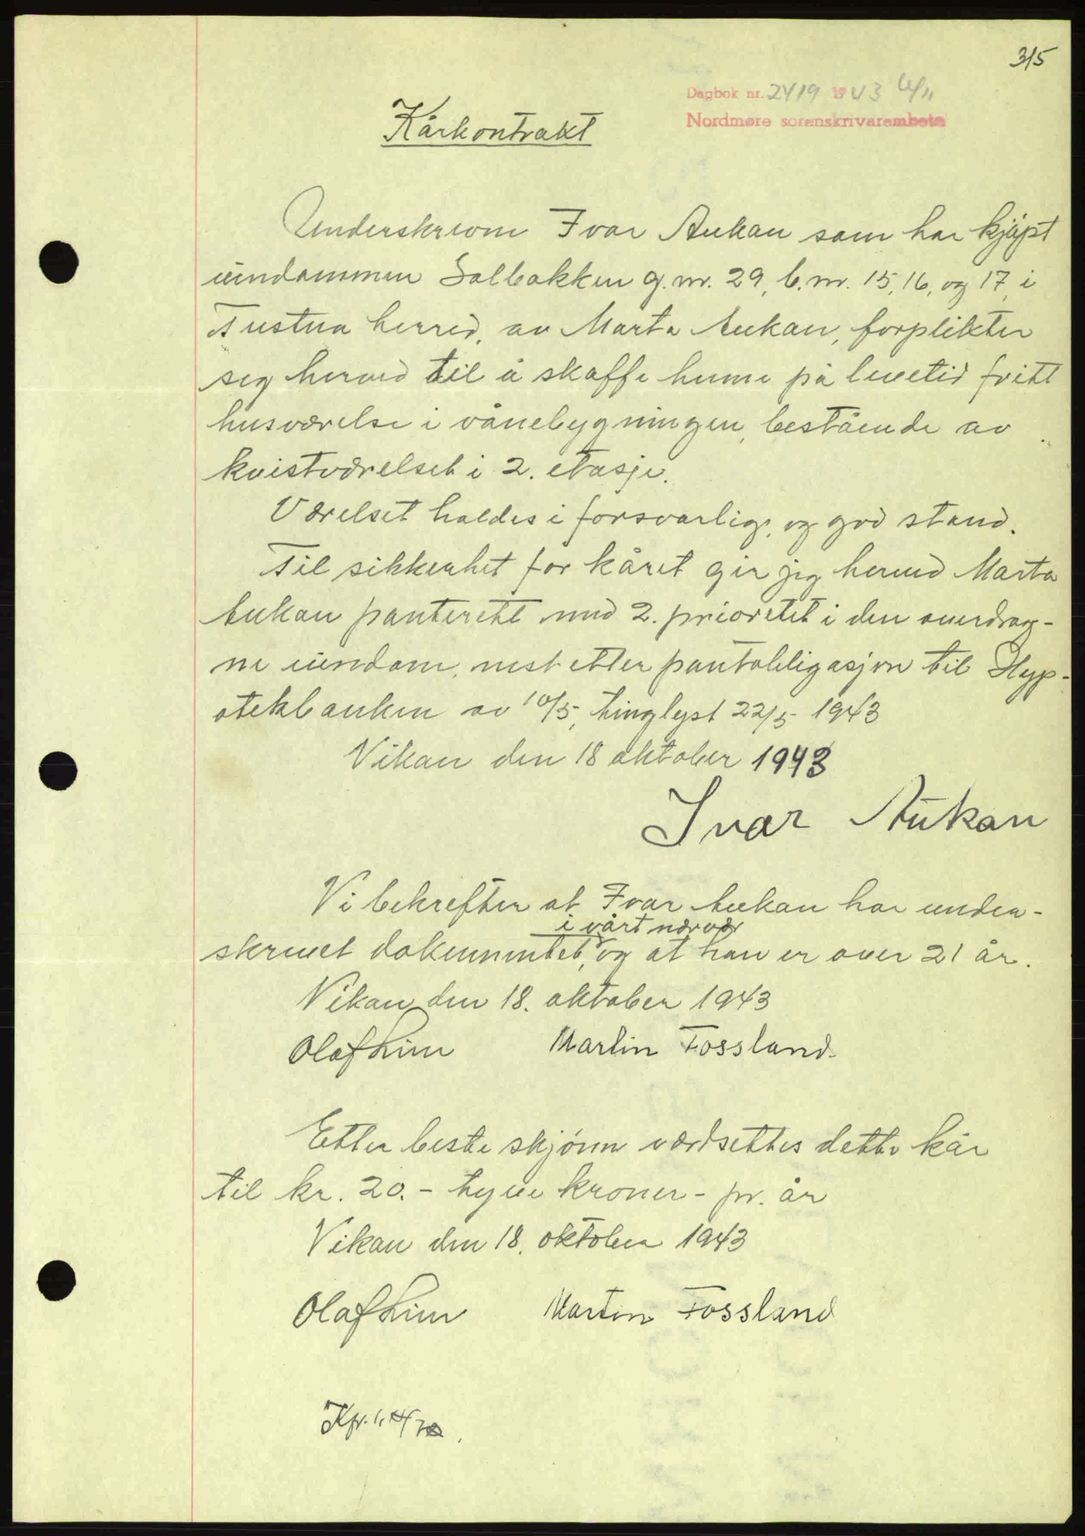 315
Dagbok nr. 2419 1943 4/11
Nordmøre sorenskrivarembete
Kårkontrakt
Underskrevne Ivar Aukan som har kjøpt
eiendommen Solbakken g.nr. 29, b.nr. 15, 16, og 17, i
Tustna herred, av Marta Aukan, forplikter
seg herved til å skaffe henne på levetid fritt
husværelse i vånebygningen, bestående av
kvistværelset i 2. etasje.
Værelset holdes i forsvarlig, og god stand.
Til sikkerhet for kåret gir jeg herved Marta
Aukan panterett med 2. prioritet i den overdrag-
ne eiendom, nest etter pantobligasjon til Hyp-
otekbanken av 10/5, tinglyst 22/5 1943
Vikan den 18 oktober 1943
Ivar Aukan
Vi bekrefter at Ivar Aukan har under-
i vårt nærvær
skrevet dokumentet, og at han er over 21 år.
Vikan den 18. oktober 1943
Olaf Lien Martin Fossland.
Etter beste skjønn verdsettes dette kår
til kr. 20.- tyve kroner - pr. år
Vikan den 18. oktober 1943
Olaf Lien Martin Fossland